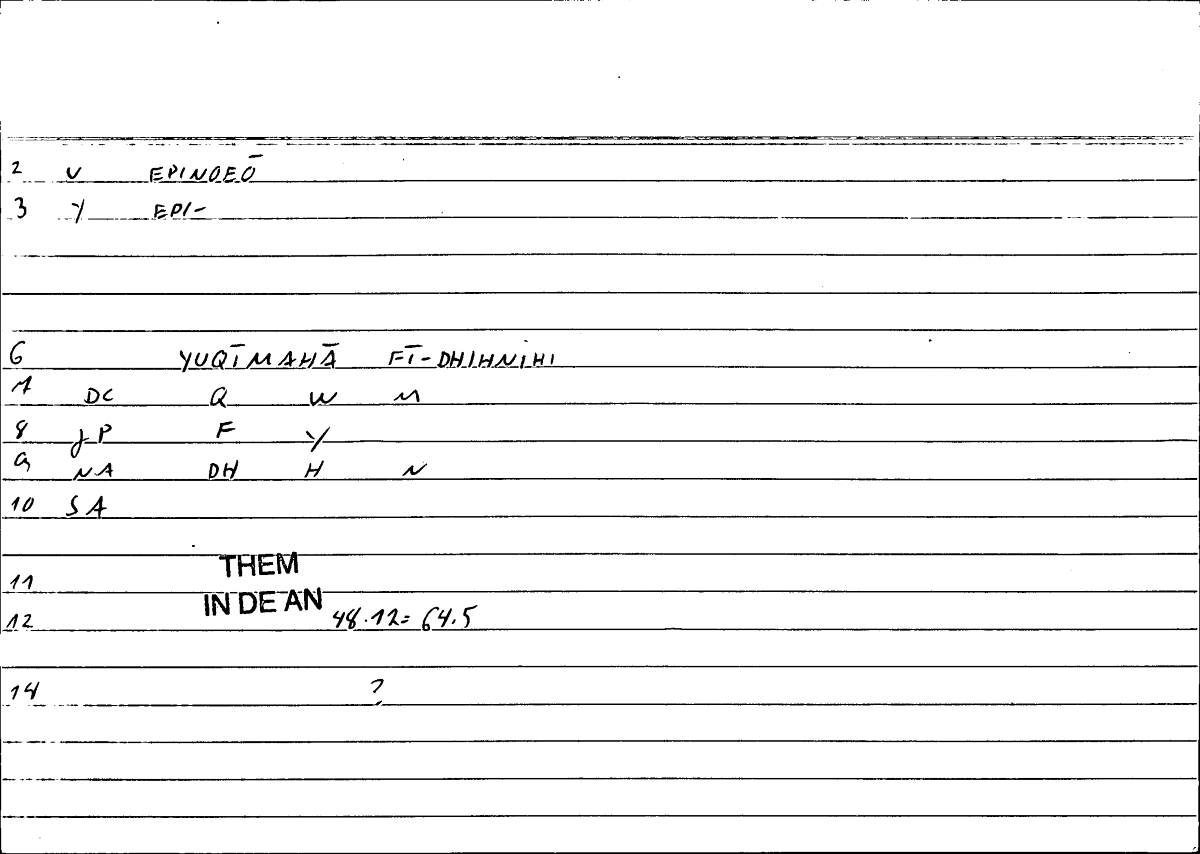 2 V EPINOEŌ
3 Y EPI-
6 YUQĪMAHĀ FĪ-DHIHNIHI
7 DC Q W M
8 JP F Y
9 NA DH H N
10 SA
THEM
11
IN DE AN
12 48.12= 64.5
14 ?